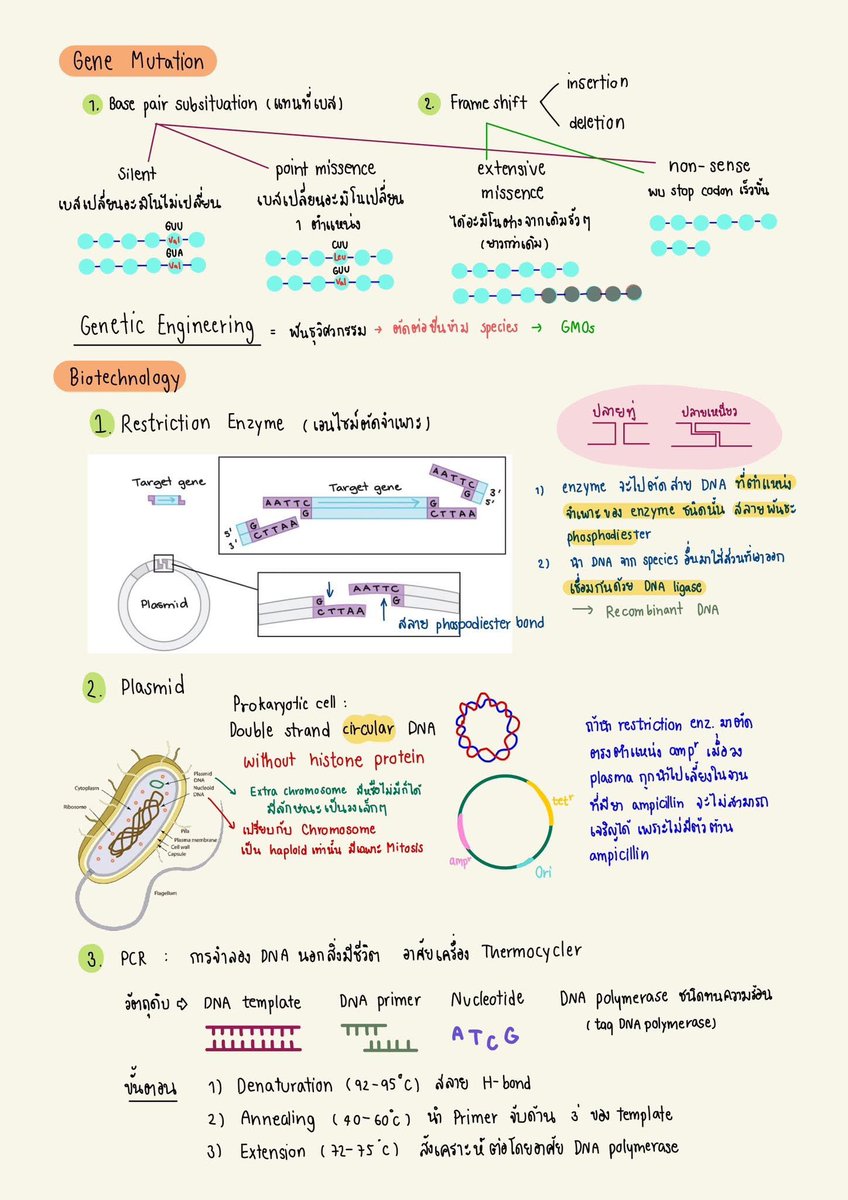 Gene Mutation
1. Base pair subsituation (แทนที่เบส)
2. Frame shift
insertion
deletion
silent
เบสเปลี่ยนอะมิโนไม่เปลี่ยน
GUU
Val
GUA
Val
point missence
เบสเปลี่ยนอะมิโนเปลี่ยน
1 ตำแหน่ง
CUU
Leu
GUU
Val
extensive
missence
ได้อะมิโนต่างจากเดิมรัวๆ
(ยาวกว่าเดิม)
non-sense
พบ stop codon เร็วขึ้น
Genetic Engineering = พันธุวิศวกรรม → ตัดต่อยีนข้าม species → GMOs
Biotechnology
1. Restriction Enzyme (เอนไซม์ตัดจำเพาะ)
ปลายทู่
ปลายเหนียว
Target gene
Target gene
AATTC
G
G
CTTAA
AATTC
G
3'
5'
G
CTTAA
5'
3'
Plasmid
G
CTTAA
AATTC
G
สลาย phospodiester bond
1) enzyme จะไปตัดสาย DNA ที่ตำแหน่ง
จำเพาะของ enzyme ชนิดนั้น สลายพันธะ
phosphodiester
2) นำ DNA จาก species อื่นมาใส่ส่วนที่เอาออก
เชื่อมกันด้วย DNA ligase
→ Recombinant DNA
2. Plasmid
Prokaryotic cell :
Double strand circular DNA
without histone protein
Extra chromosome มีหรือไม่มีก็ได้
มีลักษณะเป็นวงเล็กๆ
เปรียบกับ Chromosome
เป็น haploid เท่านั้น มีเฉพาะ Mitosis
Plasmid
DNA
Nucleoid
DNA
Cytoplasm
Ribosome
Pilla
Plasma membrane
Cell wall
Capsule
Flagellum
tetʳ
ampʳ
Ori
ถ้านำ restriction enz. มาตัด
ตรงตำแหน่ง ampʳ เมื่อวง
plasma ถูกนำไปเลี้ยงในจาน
ที่มียา ampicillin จะไม่สามารถ
เจริญได้ เพราะไม่มีตัวต้าน
ampicillin
3. PCR : การจำลอง DNA นอกสิ่งมีชีวิต อาศัยเครื่อง Thermocycler
วัตถุดิบ ⇨ DNA template
DNA primer
Nucleotide
A T C G
DNA polymerase ชนิดทนความร้อน
(taq DNA polymerase)
ขั้นตอน
1) Denaturation (92-95°C) สลาย H-bond
2) Annealing (40-60°C) นำ Primer จับด้าน 3' ของ template
3) Extension (72-75°C) สังเคราะห์ต่อโดยอาศัย DNA polymerase